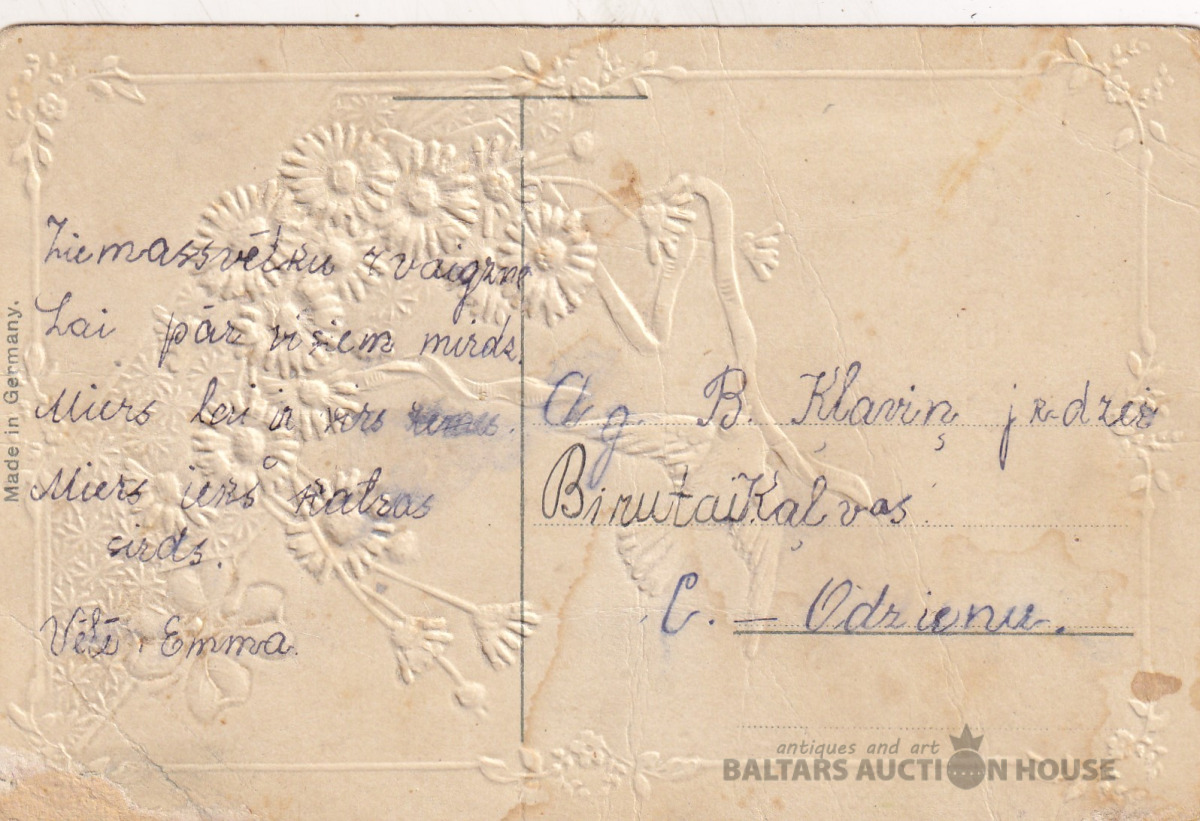 Made in Germany.
Ziemassvētku zvaigzne
Lai pār visiem mirdz.
Miers lai ir virs
Miers iekš katras
sirds.
Vēlē Emma.
Ag. B. Kļaviņ jr-dzei
Birutai Kaļvas
C. – Odzienu.
antiques and art
BALTARS AUCTION HOUSE